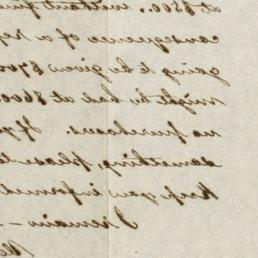 at $500, without fur
consequence of a rep
going to be given $700
might be had at $600
no purchase. If yo
something, please te
keep you informed
I remain -